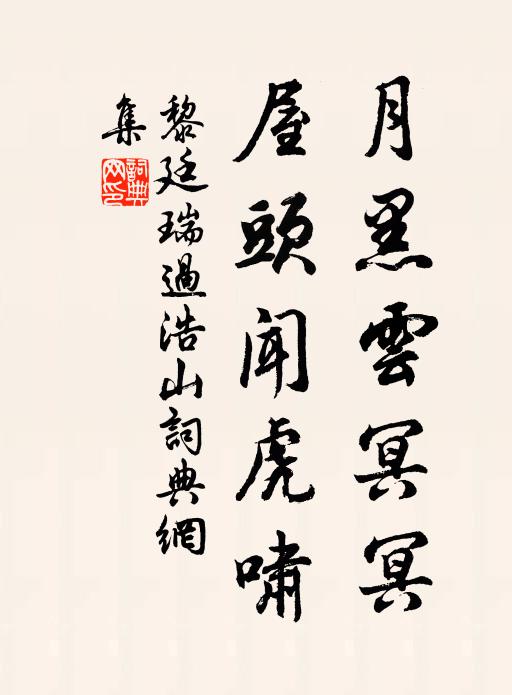 月黑雲冥冥
屋頭聞虎嘯
黎廷瑞過浩山詞典網
集
詞典網印